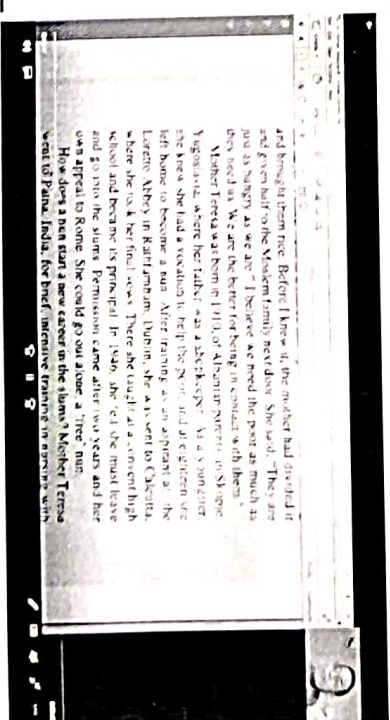 and brought them rice. Before I knew it, the mother had divided it
and given half to the Moslem family next door. She said, "They are
just as hungry as we are." I believe we need the poor as much as
they need us. We are the better for being in contact with them."
Mother Teresa was born in 1910, of Albanian parents in Skopje,
Yugoslavia, where her father was a shopkeeper. As a youngster,
she knew she had a vocation to help the poor, and at eighteen she
left home to become a nun. After training as an aspirant at the
Loretto Abbey in Rathfarnham, Dublin, she was sent to Calcutta,
where she took her final vows. There she taught at a convent high
school and became its principal. In 1946, she felt she must leave
and go into the slums. Permission came after two years and her
own appeal to Rome. She could go out alone, a "free" nun.
How does a nun start a new career in the slums? Mother Teresa
went to Patna, India, for brief, intensive training in nursing with